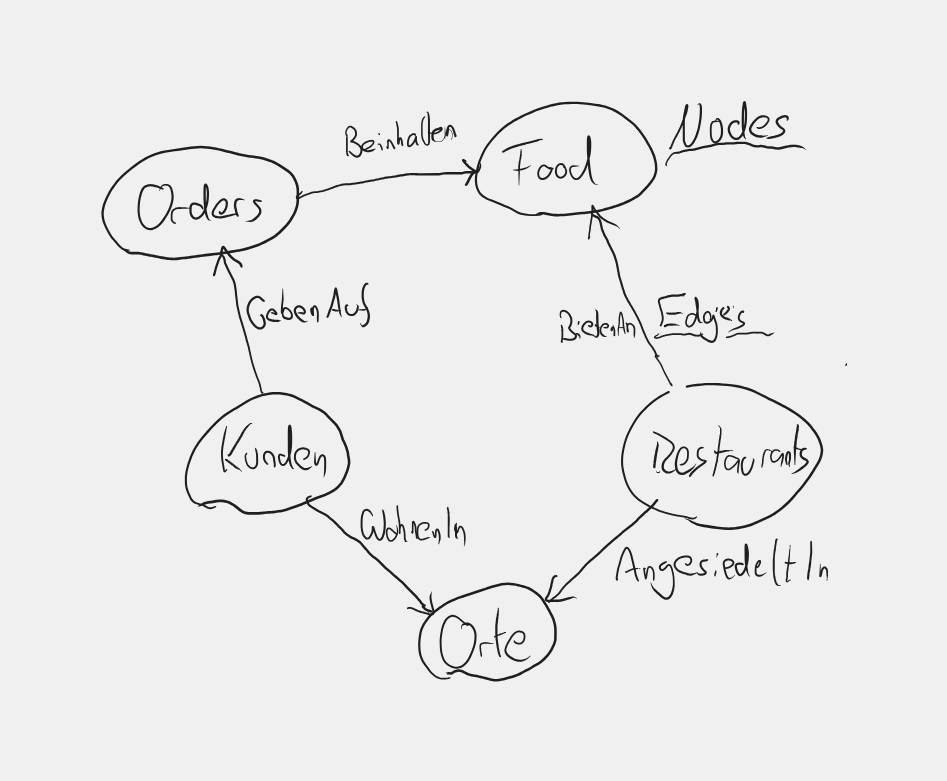 Nodes
Beinhalten
Food
Orders
GebenAuf
BietenAn
Edges
Kunden
Restaurants
WohnenIn
AngesiedeltIn
Orte